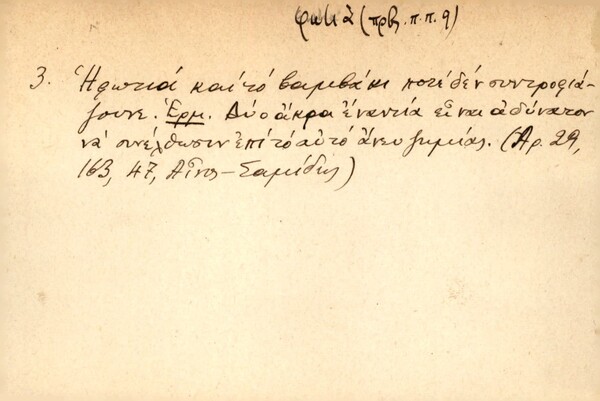 φωτιά (πρβ. π.π. 9)
3. Ἡ φωτιά καί τό βαμβάκι ποτέ δέν συντροφιά-
ζουνε. Ἑρμ. Δύο ἄκρα ἐναντία εἶναι ἀδύνατον
νά συνέλθωσιν ἐπί τό αὐτό ἄνευ ζημίας. (Αρ. 29,
163, 47, Αἶνος - Σαμίδης)